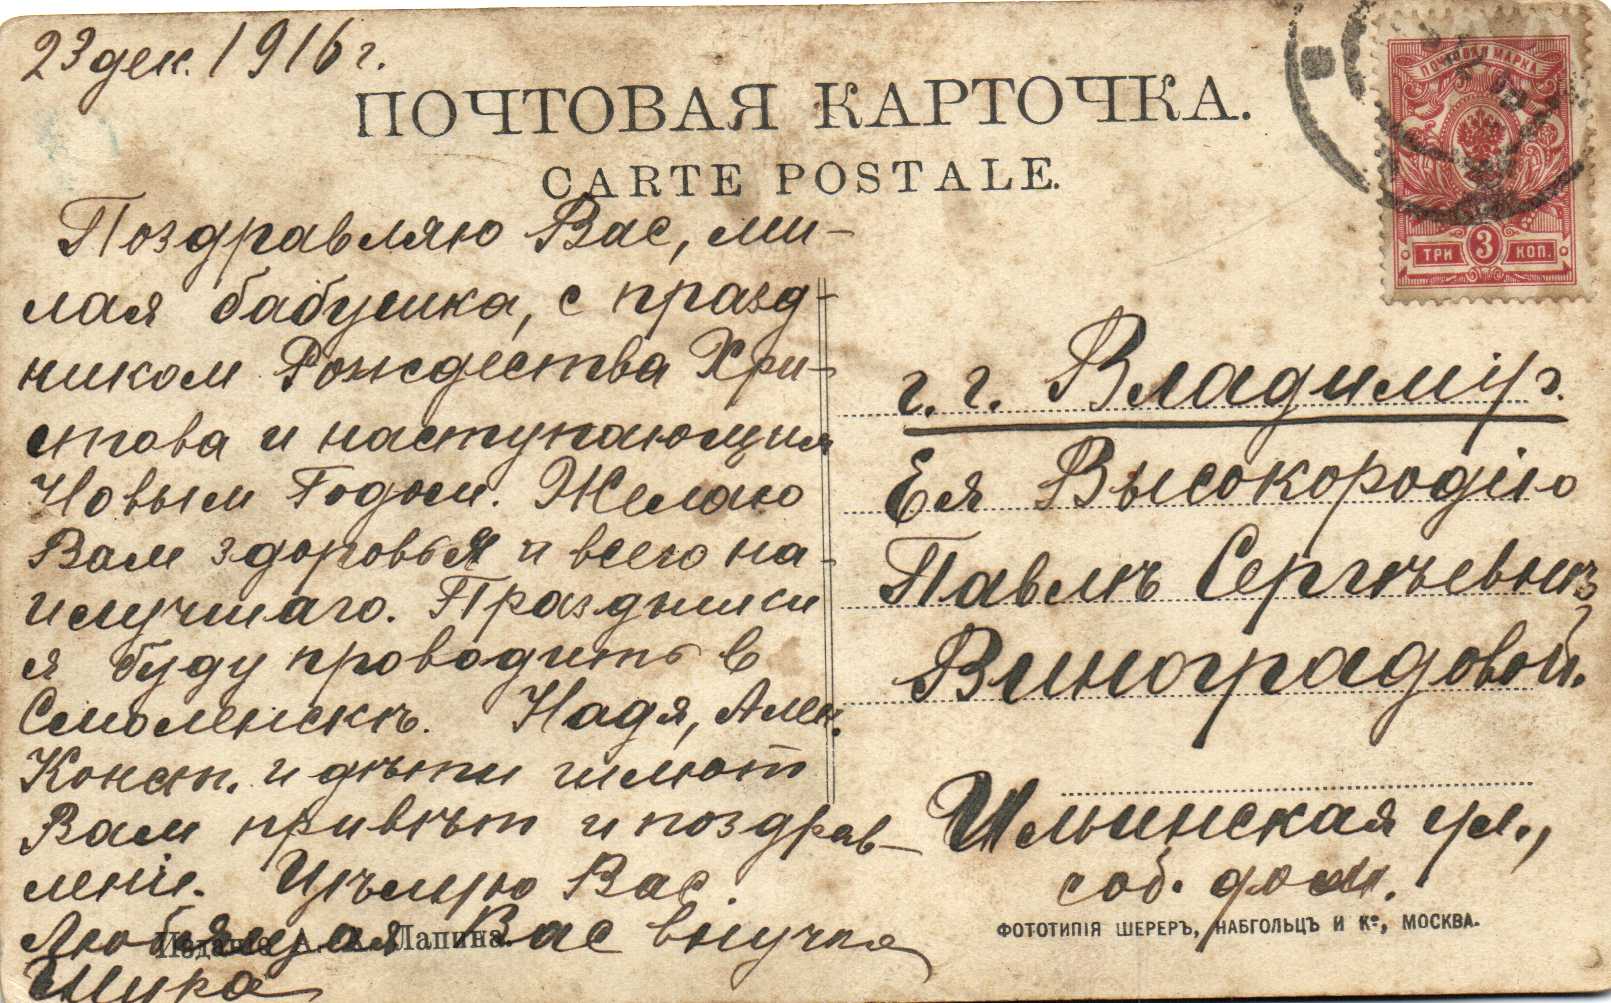 23 дек. 1916 г.
ПОЧТОВАЯ КАРТОЧКА.
CARTE POSTALE.
ПОЧТОВАЯ МАРКА
ТРИ 3 КОП.
Поздравляю Вас, ми-
лая бабушка, с празд-
ником Рождества Хри-
стова и наступающим
Новым Годом. Желаю
Вам здоровья и всего на-
илучшаго. Праздники
я буду проводить в
Смоленскѣ. Надя, Алек.
Конст. и дѣти шлют
Вам привѣт и поздрав-
леніе. Цѣлую Вас.
Любящая Вас внучка
Издание А. Лапина.
г. г. Владимір.
Ея Высокородію
Павлѣ Сергѣевнѣ
Виноградовой.
Ильинская ул.,
соб. дом.
ФОТОТИПІЯ ШЕРЕРЪ, НАБГОЛЬЦЪ И Кº, МОСКВА.